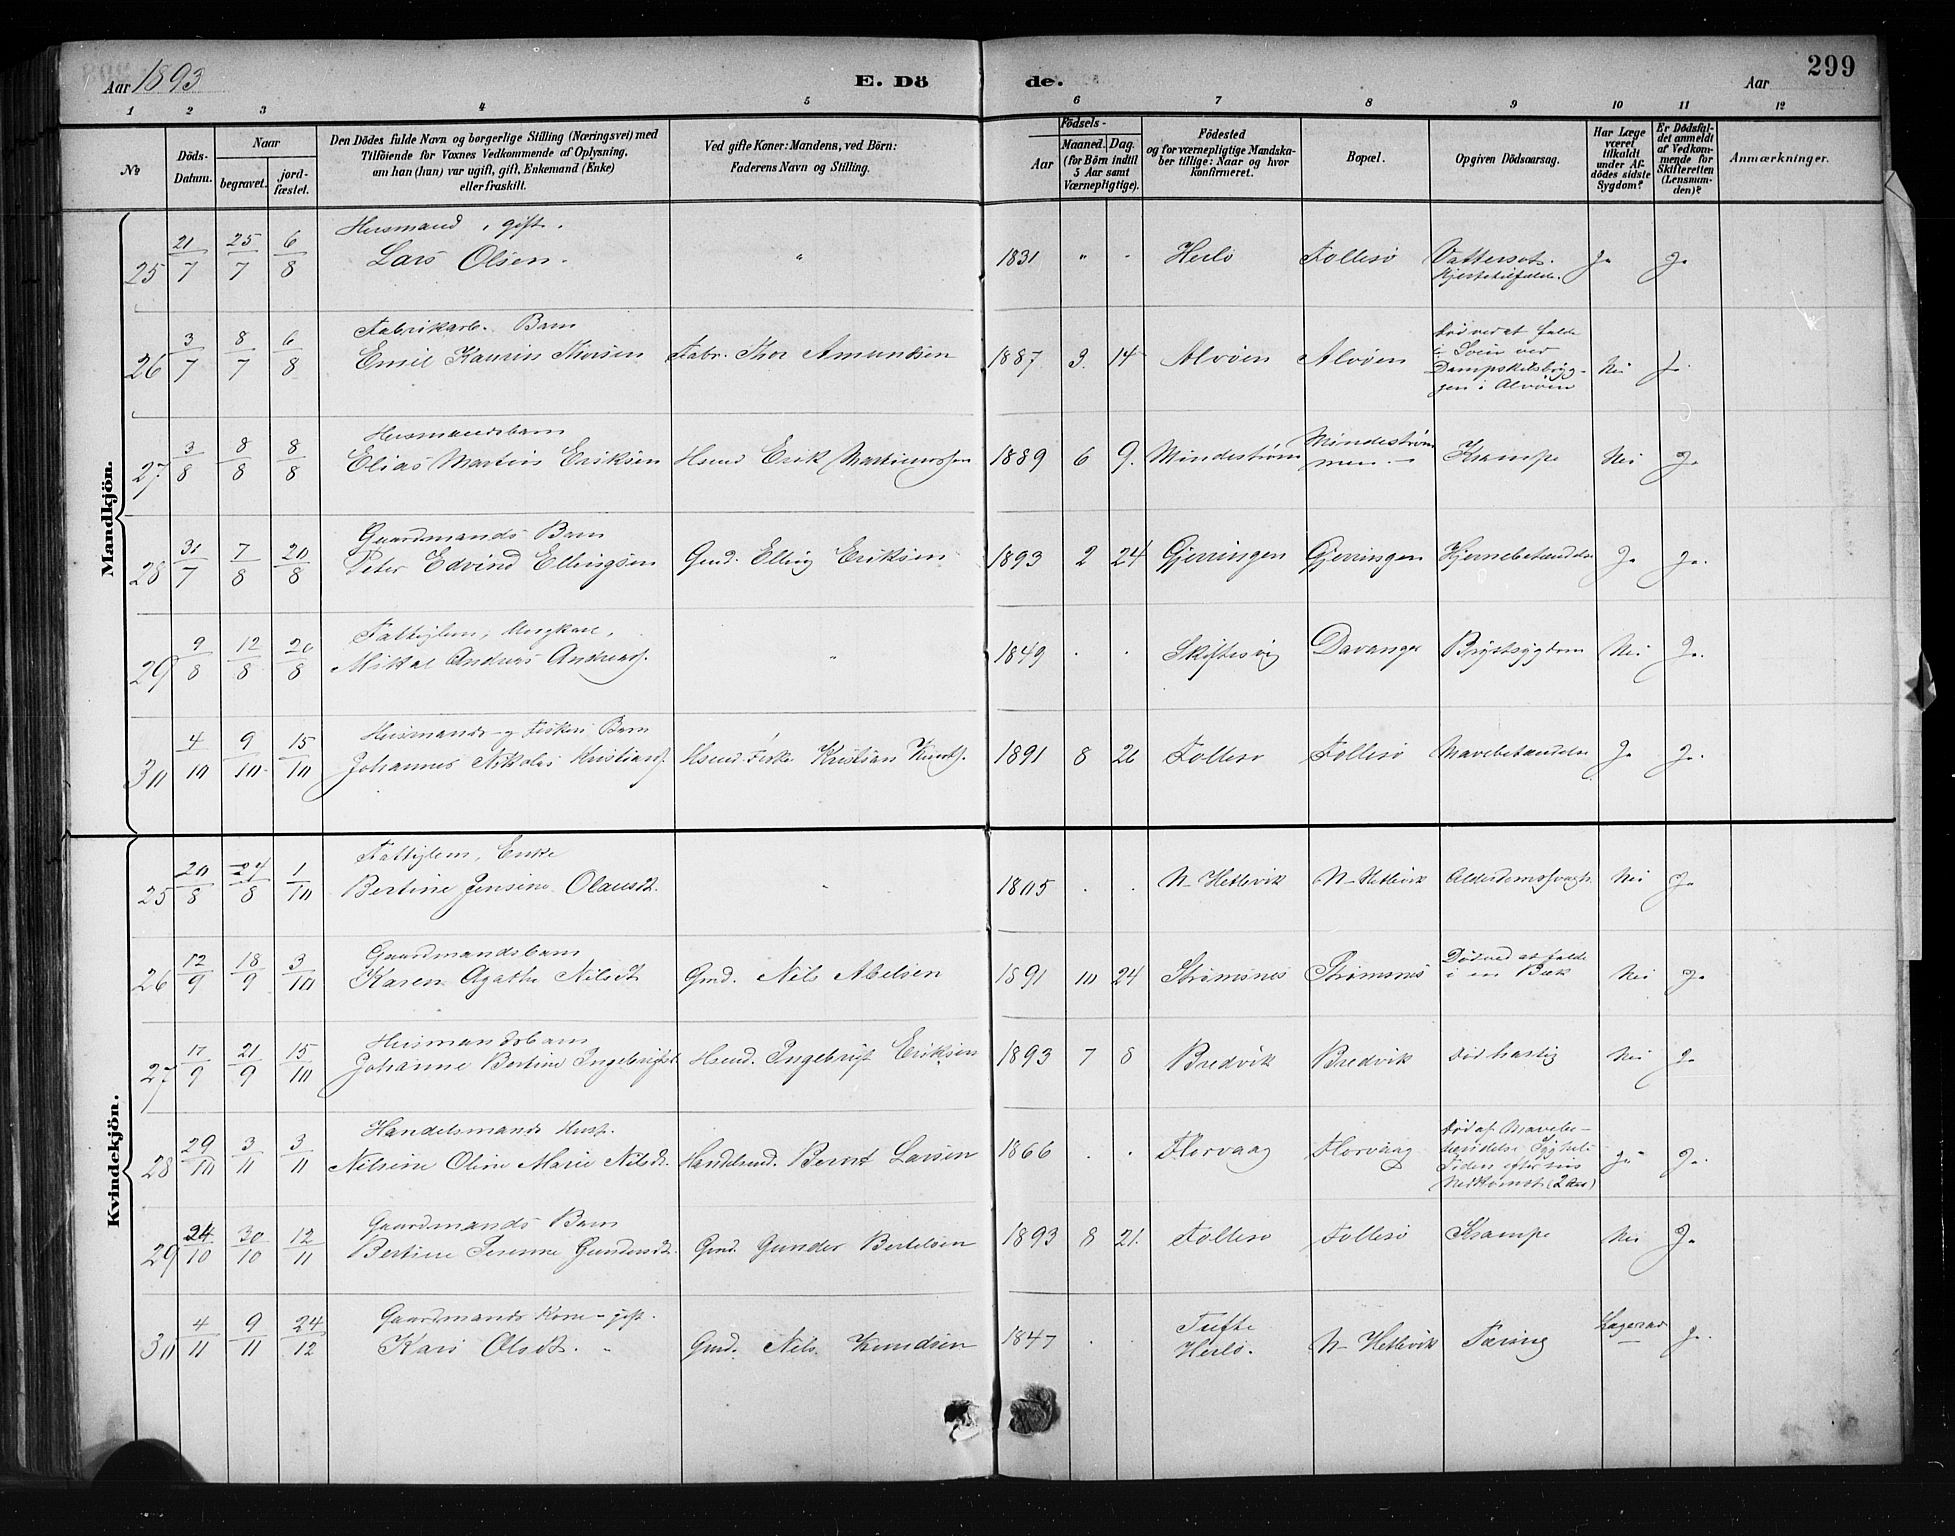 Aar 1893 E. Döde. Aar 299
1 2 3 4 5 6 7 8 9 10 11 12
№ Döds-Datum. Naar begravet. jordfæstet. Den Dödes fulde Navn og borgerlige Stilling (Næringsvei) med Tilföiende for Voxnes Vedkommende af Oplysning, om han (hun) var ugift, gift, Enkemand (Enke) eller fraskilt. Ved gifte Koner: Mandens, ved Börn: Faderens Navn og Stilling. Födsels- Aar Maaned. Dag. (for Börn indtil 5 Aar samt Værnepligtige). Födested og for værnepligtige Mandskaber tillige: Naar og hvor konfirmeret. Bopæl. Opgiven Dödsaarsag. Har Læge været tilkaldt under Afdödes sidste Sygdom? Er Dödsfaldet anmeldt af Vedkommende for Skifteretten (Lensmanden)? Anmærkninger.
Mandkjön.
Husmand, gift.
25 21/7 25/7 6/8 Lars Olsen. " 1831 " - Herlö Follesö Vattersot. Hjertetilfælde. Ja Ja
Fabrikarb. Barn
26 3/7 8/7 6/8 Emil Kaurin Thorsen Fabr. Thor Amundsen 1887 3. 14 Alvöen Alvöen Död ved at falde i Söen ved Dampskibsbryggen i Alvöen Nei Ja.
Husmandsbarn
27 3/8 8/8 8/8 Elias Martin Eriksen Hsmd Erik Martinussen 1889 6 9. Mindeström Mindeströmmen. Krampe Nei Ja
Gaardmands Barn
28 31/7 7/8 20/8 Peter Edvind Ellingsen Gmd. Elling Eriksen 1893 2 24 Gjerringen Gjerringen Hjernebetændelse Ja Ja.
Fattiglem, Ungkarl,
29 9/8 12/8 20/8 Mikal Andreas Andreass. " 1849 . . Skiftesvig Davanger Brystsygdom Nei Ja.
Husmands- og Fiskers Barn
30 4/10 9/10 15/10 Johannes Nikolai Kristians. Hsmd. Fisker Kristian Knuts. 1891 8 26 Follesö Follesö Mavebetændelse Ja Ja.
Kvindekjön.
Fattiglem, Enke
25 20/8 24/8 1/10 Bertine Jensine Olausdt. " 1805 . . N-Hetlevik N-Hetlevik Alderdomssvagh. Nei Ja
Gaardmandsbarn
26 12/9 18/9 3/10 Karen Agathe Nilsdt. Gmd. Nils Abelsen 1891 10 24 Strömsnes Strömsnes Död ved at falde i en Bæk Nei Ja
Husmandsbarn
27 17/9 21/9 15/10 Johanne Bertine Ingebrigtsdt. Hsmd. Ingebrigt Eriksen 1893 7 8 Bredvik Bredvik Död hastig Nei Ja
Handelsmands Hust.
28 29/10 3/11 3/11 Nilsine Oline Marie Nilsdt. Handelsmd. Berent Larsen 1866 . . Florvaag Florvaag Död af Mavebetændelse Sygelig siden efter sin Nedkomst (2 Aar) Ja Ja.
Gaardmands Barn
29 24/10 30/10 12/11 Bertine Serenne Gundersdt. Gmd. Gunder Bertelsen 1893 8 21. Follesö Follesö Krampe Nei Ja
Gaardmands Kone - gift.
30 4/11 9/11 24/12 Kari Olsdt. " Gmd. Nils Knudsen 1847 . . Tufte Herlö. N-Hetlevik Tæring Lægeraad Ja.